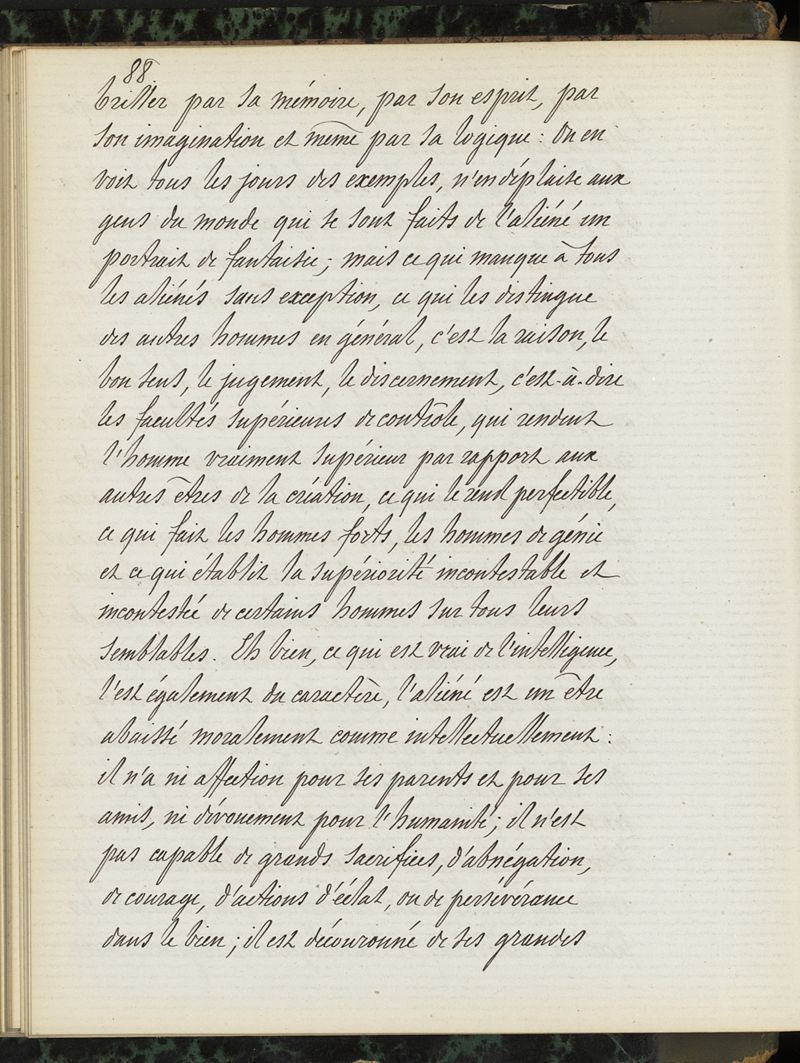 88
briller par sa mémoire, par son esprit, par
son imagination et même par sa logique : On en
voit tous les jours des exemples, n'en déplaise aux
gens du monde qui se sont faits de l'aliéné un
portrait de fantaisie ; mais ce qui manque à tous
les aliénés sans exception, ce qui les distingue
des autres hommes en général, c'est la raison, le
bon sens, le jugement, le discernement, c'est-à-dire
les facultés supérieures de contrôle, qui rendent
l'homme vraiment supérieur par rapport aux
autres êtres de la création, ce qui le rend perfectible,
ce qui fait les hommes forts, les hommes de génie
et ce qui établit la supériorité incontestable et
incontestée de certains hommes sur tous leurs
semblables. Eh bien, ce qui est vrai de l'intelligence,
l'est également du caractère, l'aliéné est un être
abaissé moralement comme intellectuellement :
il n'a ni affection pour ses parents et pour ses
amis, ni dévouement pour l'humanité ; il n'est
pas capable de grands sacrifices, d'abnégation,
de courage, d'actions d'éclat, ou de persévérance
dans le bien ; il est découronné de ses grandes